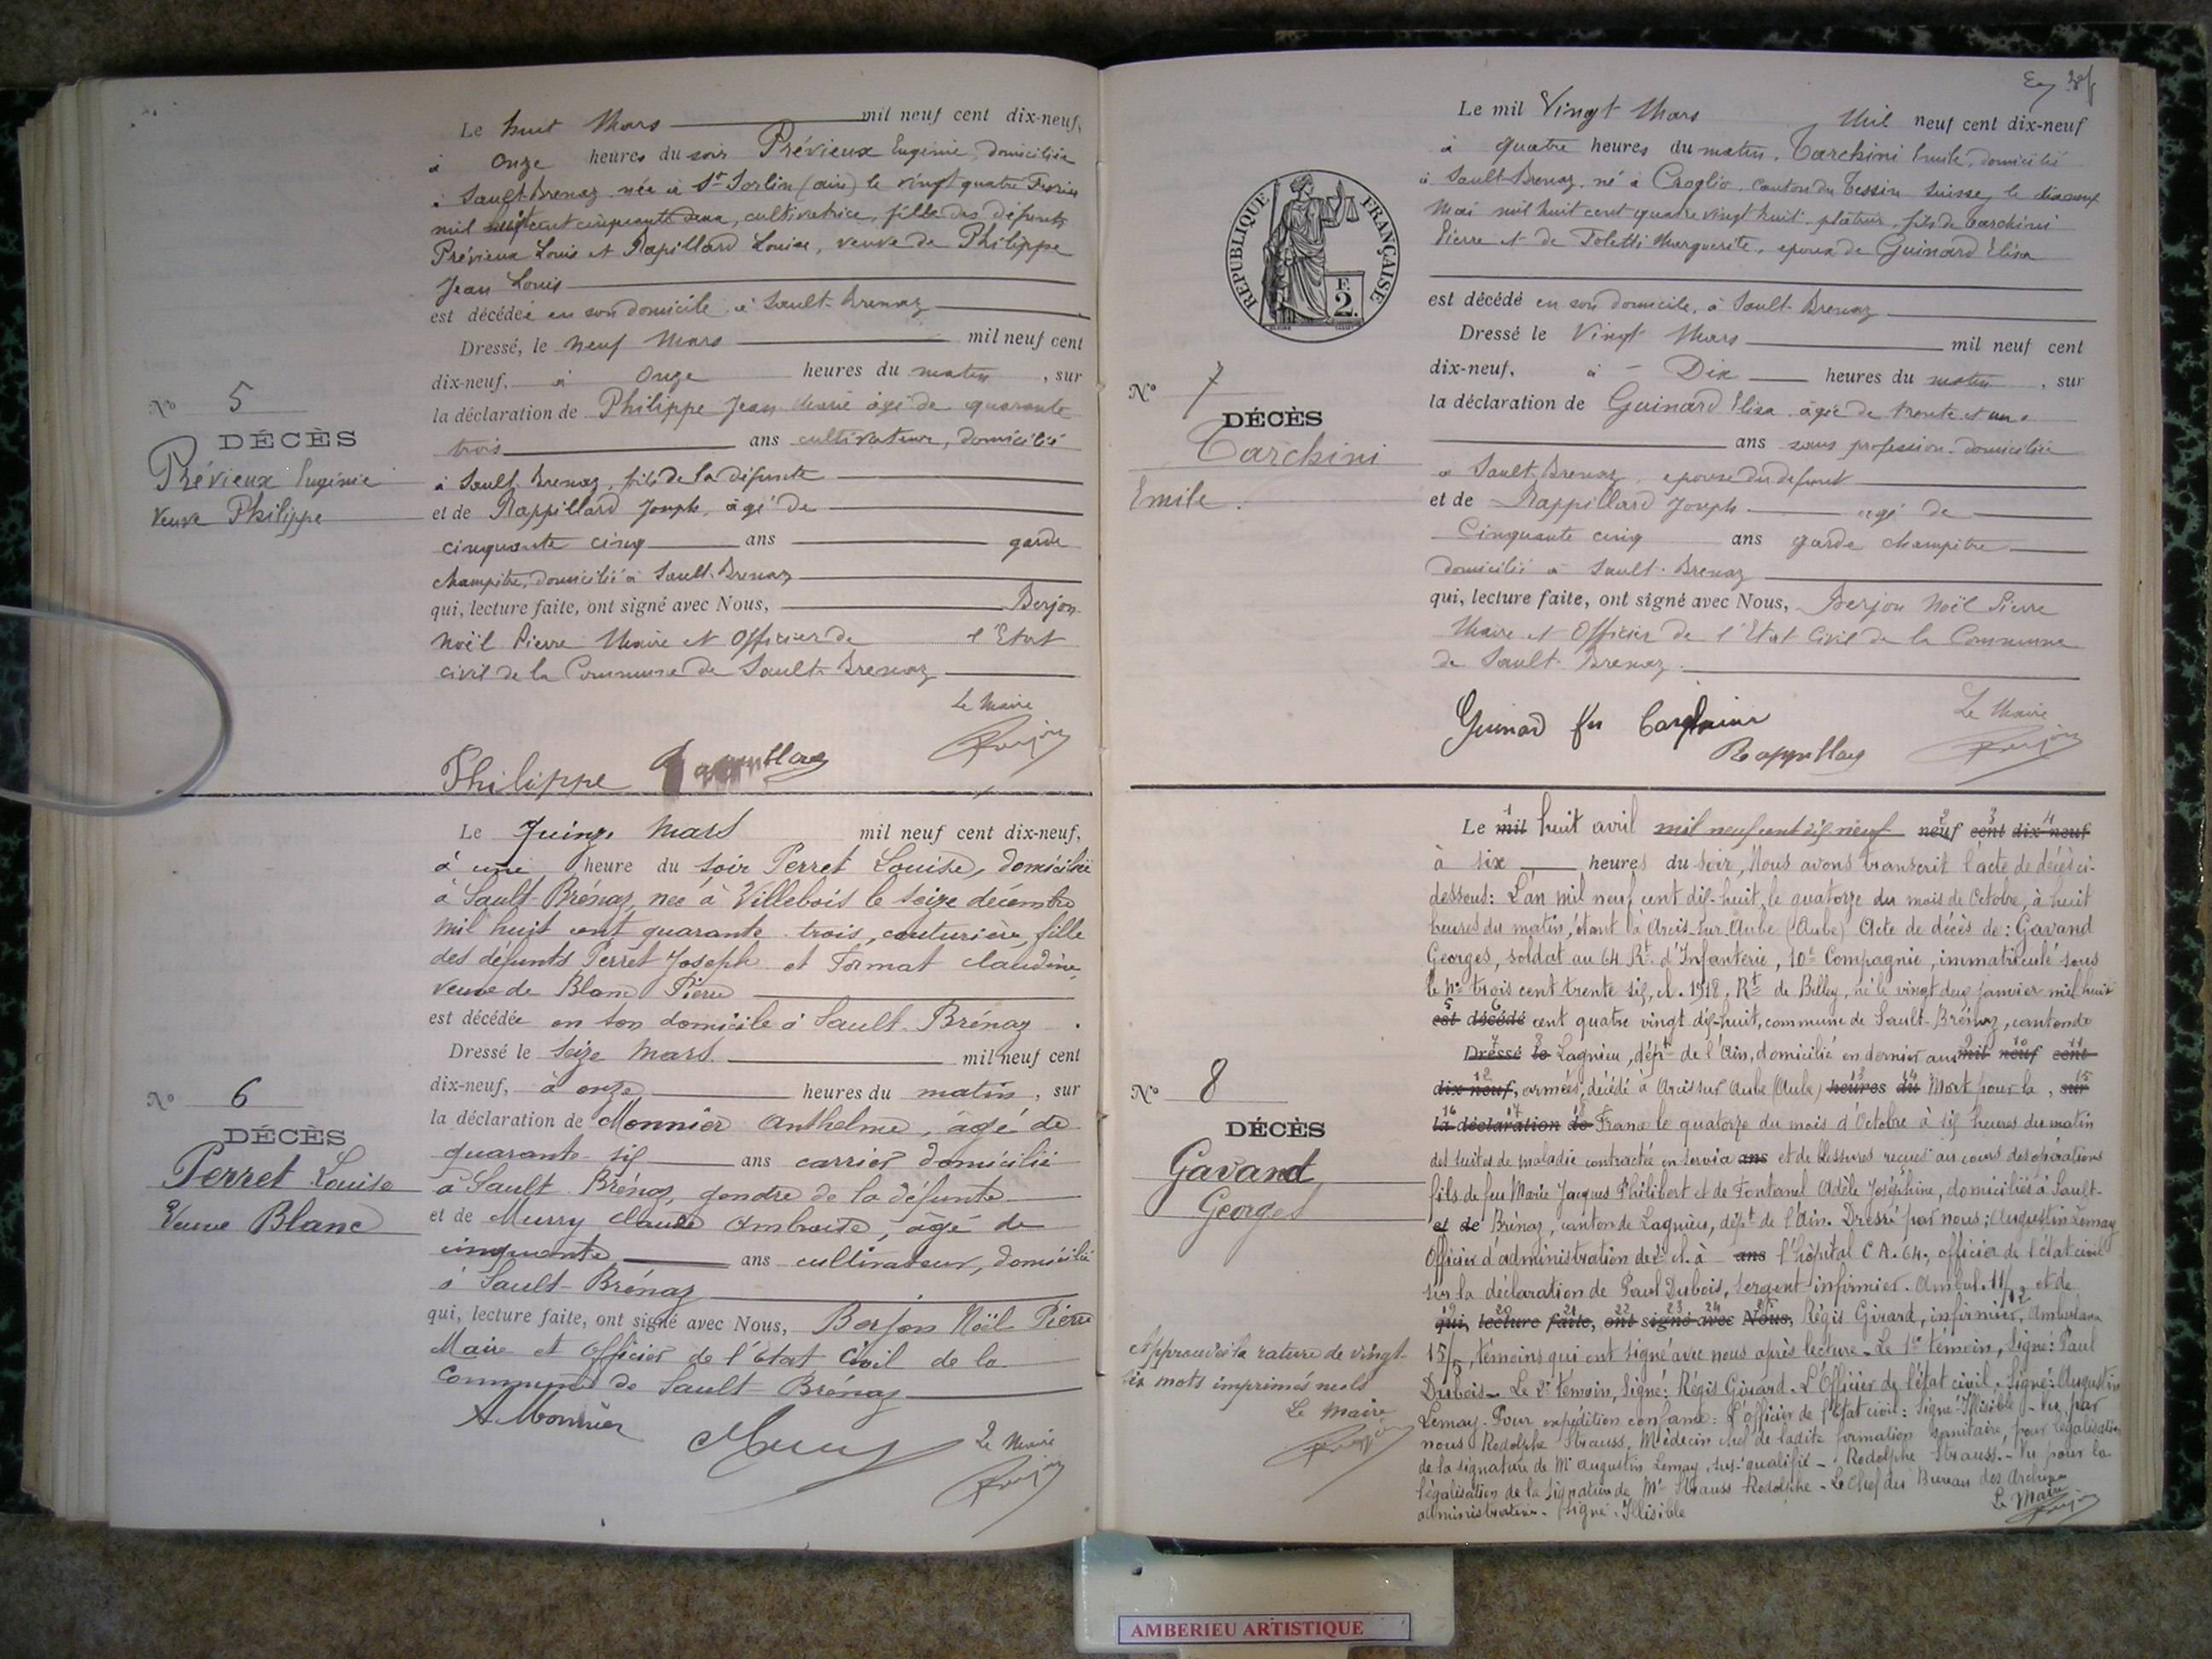 Le huit Mars mil neuf cent dix-neuf,
à onze heures du soir Prévieux Eugénie, domiciliée
à Sault-Brenaz née à St Sorlin (ain) le vingt quatre
mil cent cinquante deux, cultivatrice, fille des défunts
Prévieux Louis et Rapillard Louise, veuve de Philippe
Jean Louis
est décédée en son domicile à Sault-Brenaz
Dressé, le neuf Mars mil neuf cent
dix-neuf, à onze heures du matin, sur
la déclaration de Philippe Jean Marie âgé de quarante
trois ans cultivateur, domicilié
à Sault Brenaz, fils de la défunte
et de Rappillard Joseph, âgé de
cinquante cinq ans garde
champêtre, domicilié à Sault-Brenaz
qui, lecture faite, ont signé avec Nous, Berjon
Noël Pierre Maire et Officier de l'Etat
civil de la Commune de Sault-Brenaz
Le Maire
Philippe
No 5
DÉCÈS
Prévieux Eugénie
Veuve Philippe
Le Quinze Mars mil neuf cent dix-neuf,
à une heure du soir Perret Louise, domiciliée
à Sault-Brénaz, née à Villebois le seize décembre
mil huit cent quarante-trois, couturière, fille
des défunts Perret Joseph et Tormat Claudine,
veuve de Blanc Pierre
est décédée en son domicile à Sault-Brénaz.
Dressé le seize Mars mil neuf cent
dix-neuf, à onze heures du matin, sur
la déclaration de Monnier Anthelme, âgé de
quarante-six ans carrier domicilié
à Sault Brénaz, gendre de la défunte
et de Murry Claude Ambroise, âgé de
cinquante ans cultivateur, domicilié
à Sault-Brénaz
qui, lecture faite, ont signé avec Nous, Berjon Noël Pierre
Maire et Officier de l'état Civil de la
Commune de Sault-Brénaz
A Monnier
Le Maire
No 6
DÉCÈS
Perret Louise
Veuve Blanc
Le mil Vingt Mars Mil neuf cent dix-neuf
à quatre heures du matin, Tarchini Emile, domicilié
à Sault-Brenaz, né à Croglio, canton du Tessin Suisse, le dixneuf
Mai mil huit cent quatre vingt huit, plâtrier, fils de Tarchini
Pierre et de Toletti Marguerite, epoux de Guinard Elisa
est décédé en son domicile, à Sault-Brenaz
Dressé le Vingt Mars mil neuf cent
dix-neuf, à Dix heures du matin, sur
la déclaration de Guinard Elisa âgée de trente et un
ans sans profession domiciliée
à Sault-Brenaz, epouse du defunt
et de Rappillard Joseph agé de
Cinquante cinq ans garde champêtre
domicilié à Sault-Brenaz
qui, lecture faite, ont signé avec Nous, Berjon Noël Pierre
Maire et Officier de l'Etat Civil de la Commune
de Sault-Brenaz.
Le Maire
Guinard
RÉPUBLIQUE FRANÇAISE
F.
2.
No 7
DÉCÈS
Tarchini
Emile.
Le mil huit avril mil neuf cent dix neuf neuf cent dix-neuf
à six heures du soir, Nous avons transcrit l'acte de décès ci-
dessous: L'an mil neuf cent dix-huit, le quatorze du mois de Octobre, à huit
heures du matin, étant à Arcis-sur-Aube (Aube) Acte de décès de: Gavand
Georges, soldat au 64 Rt d'Infanterie, 10e Compagnie, immatriculé sous
le No trois cent trente six, cl. 1918, Rt de Belley, né le vingt deux janvier mil huit
est décédé cent quatre vingt dix-huit, commune de Sault-Brénaz, canton de
Dressé le Lagnieu, dépt de l'Ain, domicilié en dernier aux mil neuf cent
dix-neuf, armées, décédé à Arcis sur Aube (Aube) heures du Mort pour la, sur
la déclaration de France le quatorze du mois d'Octobre à six heures du matin
des suites de maladie contractée en service ans et de blessures reçues au cours des opérations
fils de feu Marie Jacques Philibert et de Fontanel Adèle Joséphine, domiciliés à Sault-
et de Brénaz, canton de Lagnieu, dépt de l'Ain. Dressé par nous: Augustin Lemay
Officier d'administration de 2e cl. à ans l'hôpital C A. 64; officier de l'état civil
sur la déclaration de Paul Dubois, sergent infirmier. Ambul. 11/12 et de
qui, lecture faite, ont signé avec Nous, Régis Girard, infirmier, Ambulance
15/5, témoins qui ont signé avec nous après lecture. Le 1er témoin, Signé: Paul
Dubois. Le 2e témoin, Signé: Régis Girard. L'Officier de l'état civil. Signé: Augustin
Lemay. Pour expédition conforme: L'officier de l'état civil: Signé: Illisible. Vu par
nous Rodolphe Strauss, Médecin chef de ladite formation sanitaire, pour légalisation
de la signature de Mr Augustin Lemay, sus-qualifié. Rodolphe Strauss. - Vu pour la
légalisation de la signature de Mr Strauss Rodolphe. Le Chef du Bureau des Archives
administratives. Signé: Illisible
Le Maire
No 8
DÉCÈS
Gavand
Georges
Approuvé la rature de vingt-
six mots imprimés nuls
Le Maire
AMBERIEU ARTISTIQUE